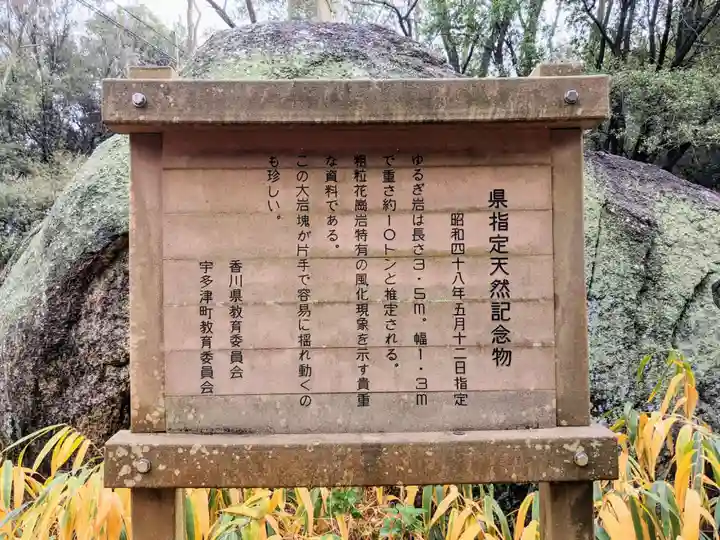 県指定天然記念物
昭和四十八年五月十二日指定
ゆるぎ岩は長さ3.5m。幅1.3m
で重さ約10トンと推定される。
粗粒花崗岩特有の風化現象を示す貴重
な資料である。
この大岩塊が片手で容易に揺れ動くの
も珍しい。
香川県教育委員会
宇多津町教育委員会